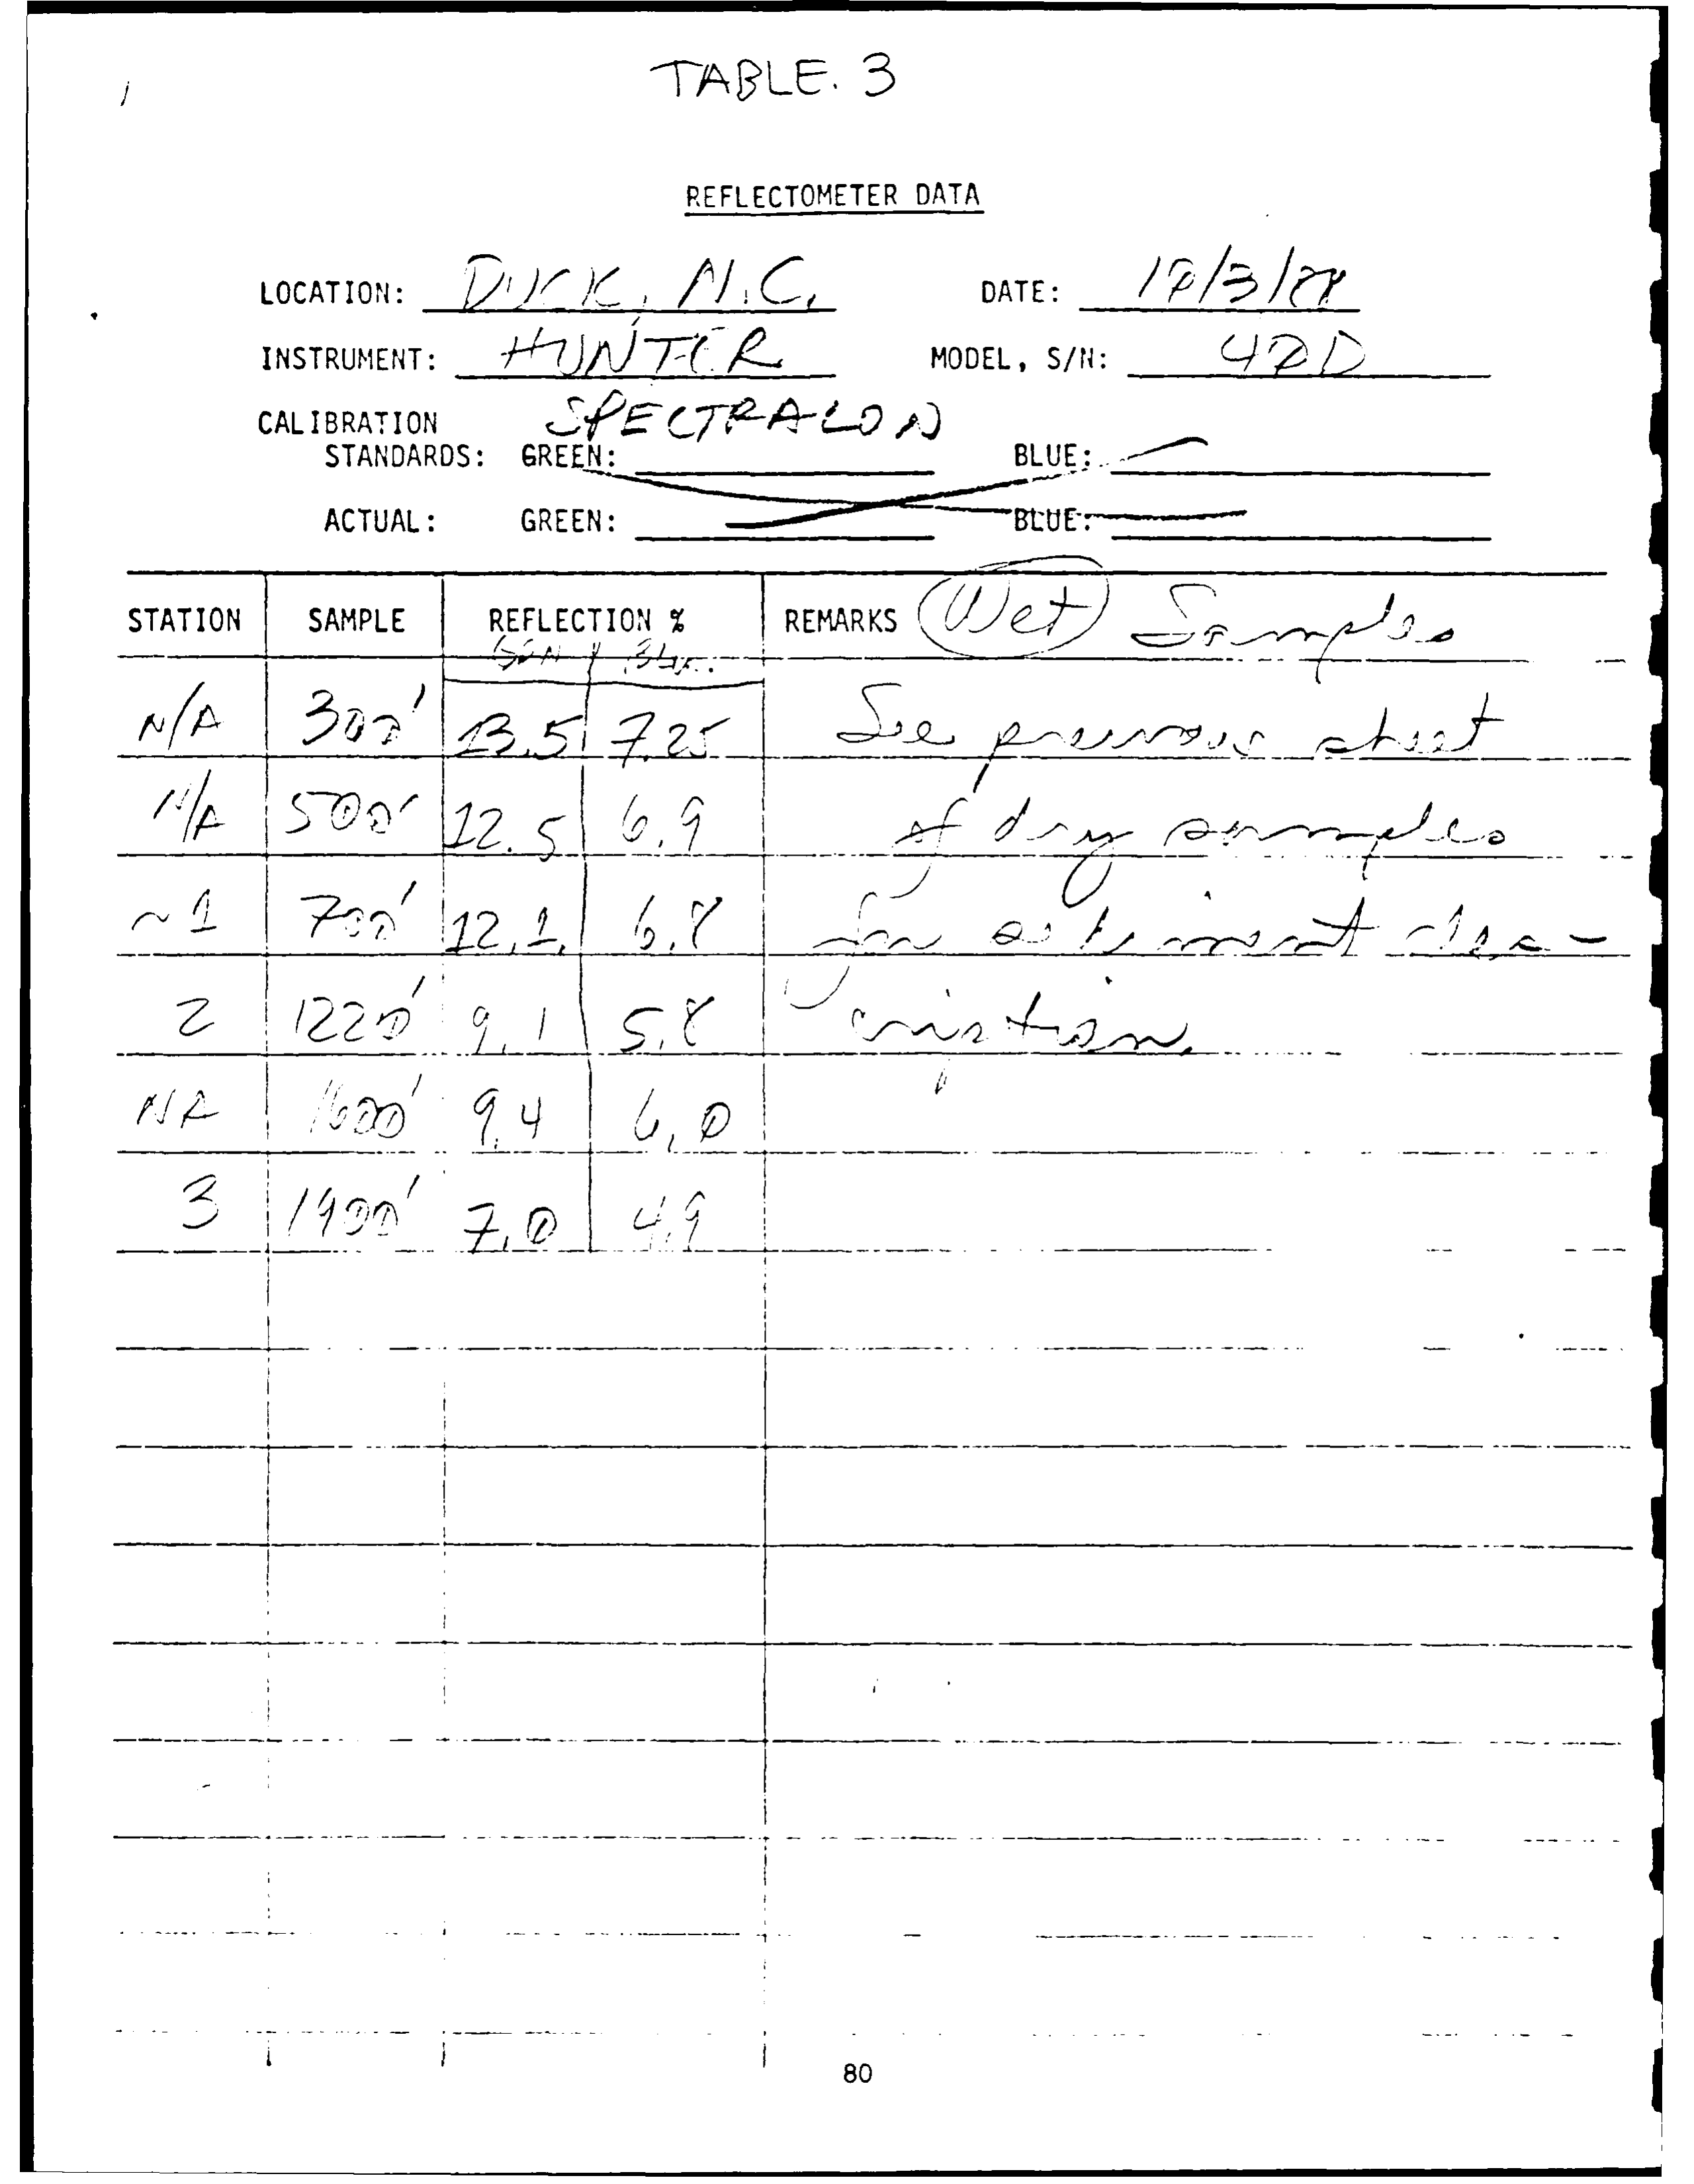 TABLE. 3
REFLECTOMETER DATA
LOCATION: DUCK, N.C. DATE: 10/3/88
INSTRUMENT: HUNTER MODEL, S/N: 40D
CALIBRATION SPECTRALON
STANDARDS: GREEN: BLUE:
ACTUAL: GREEN: BLUE:
STATION SAMPLE REFLECTION % REMARKS Wet Samples
GRN Blu.
N/A 300' 13.5 7.25 See previous sheet
N/A 500' 12.5 6.9 of dry samples
~1 700' 12.1 6.8 for sediment des-
2 1220' 9.1 5.8 cription.
NA 1600' 9.4 6.0
3 1900' 7.0 4.9
80